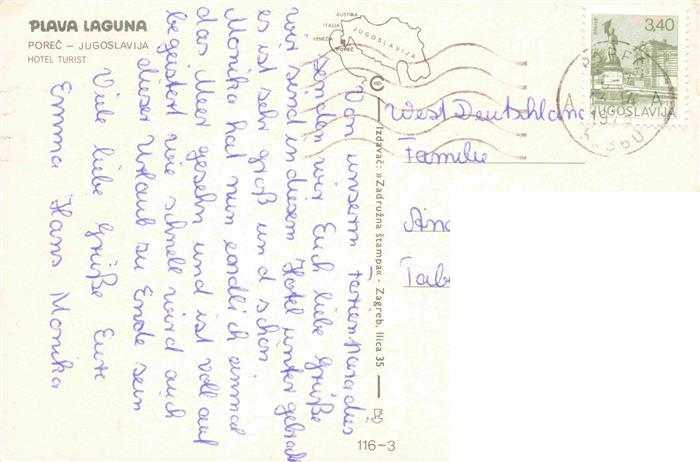 PLAVA LAGUNA
POREČ – JUGOSLAVIJA
HOTEL TURIST
AUSTRIA
ITALIA
VENEZIA
POREČ
JUGOSLAVIJA
3,40
JUGOSLAVIJA
Von unserm Ferienparadies
senden wir Euch liebe Grüße
wir sind in diesem Hotel unter gebracht
es ist sehr groß und schön.
Monika hat nun endlich einmal
das Meer gesehn und ist voll auf
begeistert wie schnell wird auch
dieser Urlaub zu Ende sein
Viele liebe Grüße Eure
Emma Hans Monika
Izdavač: »Zadružna štampa« - Zagreb, Ilica 35
116-3
West Deutschland
Familie